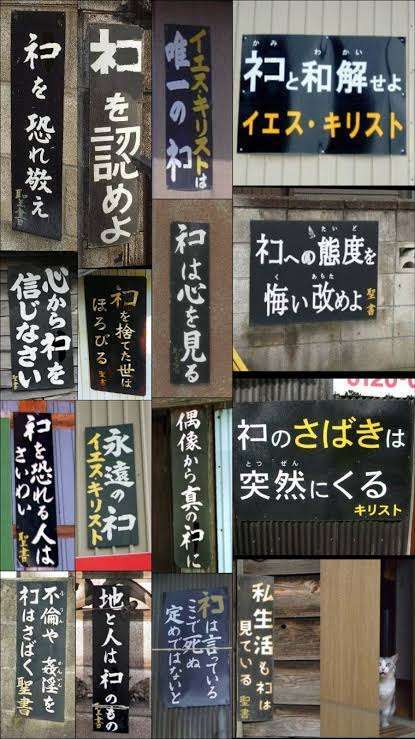 ネコを恐れ敬え
聖書
ネコを認めよ
イエス・キリストは
唯一のネコ
かみ わかい
ネコと和解せよ
イエス・キリスト
ネコは心を見る
たいど
ネコへの態度を
く あらた
悔い改めよ 聖書
心からネコを
信じなさい
聖書
ネコを捨てた世は
ほろびる 聖書
ネコを恐れる人は
さいわい 聖書
永遠のネコ
イエスキリスト
偶像から真のネコに
0120-0
ネコのさばきは
とつ ぜん
突然にくる
キリスト
不倫や姦淫を
ネコはさばく 聖書
地と人はネコのもの
聖書
ネコは言っている
ここで死ぬ
定めではないと
私生活もネコは
見ている 聖書